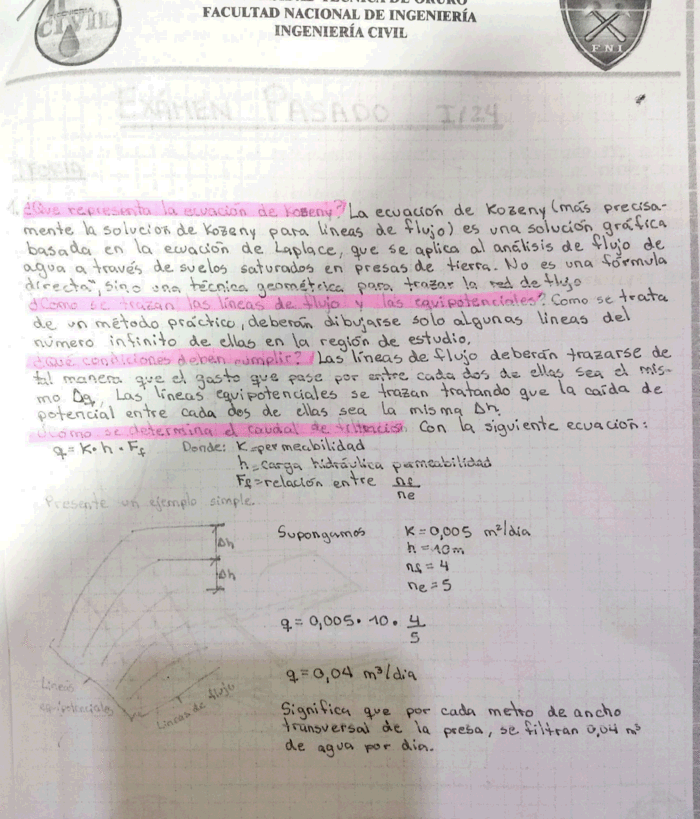 FACULTAD NACIONAL DE INGENIERÍA
INGENIERÍA CIVIL
CIVIL
F N I
EXÁMEN PASADO I/24
TEORIA
1. ¿Que representa la ecuación de Kozeny? La ecuación de Kozeny (más precisa-
mente la solución de Kozeny para líneas de flujo) es una solución gráfica
basada en la ecuación de Laplace, que se aplica al análisis de flujo de
agua a través de suelos saturados en presas de tierra. No es una fórmula
directa", sino una técnica geométrica para trazar la red de flujo
¿Como se trazan las líneas de flujo y las equipotenciales? Como se trata
de un método práctico, deberán dibujarse solo algunas lineas del
número infinito de ellas en la región de estudio.
¿Qué condiciones deben cumplir? Las líneas de flujo deberán trazarse de
tal manera que el gasto que pase por entre cada dos de ellas sea el mis-
mo Δq, Las líneas equipotenciales se trazan tratando que la caída de
potencial entre cada dos de ellas sea la misma Δh.
¿Cómo se determina el caudal de filtración. Con la siguiente ecuación:
q = K · h · Ff Donde: K=permeabilidad
h=carga hidráulica permeabilidad
Ff=relación entre nf/ne
Presente un ejemplo simple.
Δh
Δh
Lineas
equipotenciales
Lineas de flujo
Supongamos K=0,005 m²/dia
h=10m
nf=4
ne=5
q=0,005 · 10 · 4/5
q=0,04 m³/dia
Significa que por cada metro de ancho
transversal de la presa, se filtran 0,04 m³
de agua por dia.